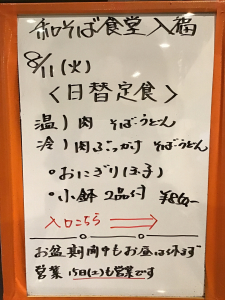 和そば食堂 入福
8/11(火)
〈日替定食〉
温)肉 そばうどん
冷)肉ぶっかけ そばうどん
・おにぎり(玉子)
・小鉢 2品付
入口こちら
お盆期間中もお昼は休まず
営業 15日(土)も営業です